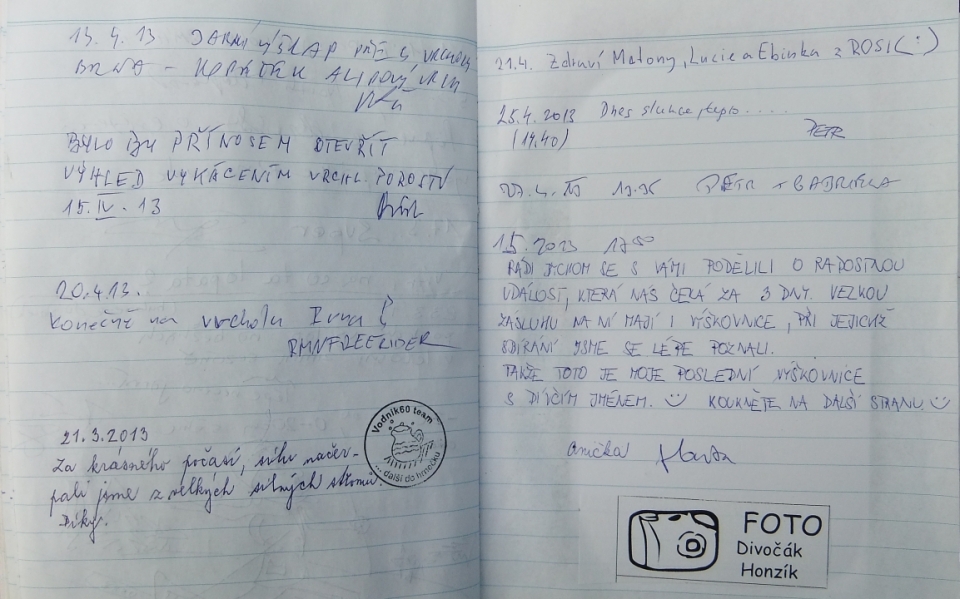 13.4.13 JARNÍ VÝŠLAP PŘES VRCHOLY
BRNA – KOPÁTEK A LIPOVÝ VRCH
BYLO BY PŘÍNOSEM OTEVŘÍT
VÝHLED VYKÁCENÍM VRCHL. POROSTŮ
15.IV.13
20.4.13.
Konečně na vrcholu
RMNFREERIDER
21.3.2013
Za krásného počasí, sílu načer-
pali jsme z velkých silných stromů.
Díky.
Vodník60 team
... další do hrnečku
21.4. Zdraví Matony, Lucie a Ebinka z ROSI(:)
25.4.2013 Dnes slunce, teplo.....
(17.40) PETR
27.4.13 PETR + BABRINKA
1.5.2013 17⁵⁰
RÁDI BYCHOM SE S VÁMI PODĚLILI O RADOSTNOU
UDÁLOST, KTERÁ NÁS ČEKÁ ZA 3 DNY. VELKOU
ZÁSLUHU NA NÍ MAJÍ I VÝŠKOVNICE, PŘI JEJICHŽ
SBÍRÁNÍ JSME SE LÉPE POZNALI.
TAKŽE TOTO JE MOJE POSLEDNÍ VÝŠKOVNICE
S DÍVČÍM JMÉNEM. KOUKNĚTE NA DALŠÍ STRANU
Anička
FOTO
Divočák
Honzík